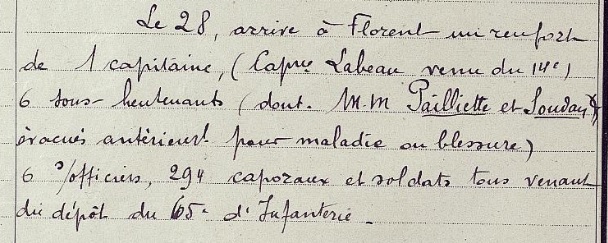 Le 28, arrive à Florent un renfort
de 1 capitaine, (Capne Labeau venu du 14e)
6 sous-lieutenants (dont. M M Pailliette et Loudan
évacués antérieurt pour maladie ou blessure)
6 s/officiers, 294 caporaux et soldats tous venant
du dépôt du 65e d'Infanterie.